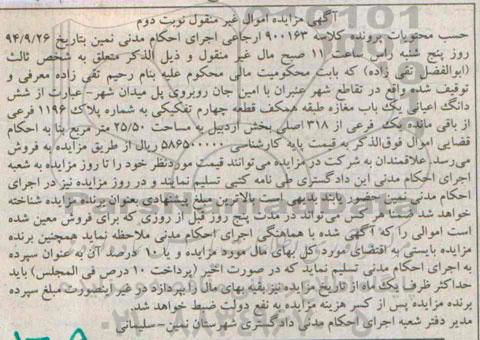 آگهی مزایده اموال غیر منقول نوبت دوم
حسب محتویات پرونده کلاسه ۹۰۰۱۶۳ ارجاعی اجرای احکام مدنی نمین بتاریخ ۹۴/۹/۲۶
روز پنج شنبه راس ساعت ۱۱ صبح مال غیر منقول و ذیل الذکر متعلق به شخص ثالث
(ابوالفضل تقی زاده) که بابت محکومیت مالی محکوم علیه بنام رحیم تقی زاده معرفی و
توقیف شده واقع در تقاطع شهر عنبران با امین جان روبروی پل میدان شهر- عبارت از شش
دانگ اعیانی یک باب مغازه طبقه همکف قطعه چهارم تفکیکی به شماره پلاک ۱۱۹۶ فرعی
از باقی مانده یک فرعی از ۳۱۸ اصلی بخش اردبیل به مساحت ۲۵/۵۰ متر مربع بنا به احکام
قضایی اموال فوق الذکر به قیمت پایه کارشناسی ۵۸۶۵۰۰۰۰۰ ریال از طریق مزایده به فروش
می رسد علاقمندان به شرکت در مزایده می توانند قیمت موردنظر خود را تا روز مزایده به شعبه
اجرای احکام مدنی این دادگستری طی نامه کتبی تسلیم نمایند و در روز مزایده نیز در اجرای
احکام مدنی نمین حضور یابند بدیهی است بالاترین مبلغ پیشنهادی بعنوان برنده مزایده شناخته
خواهد شد ضمنا هر کس می تواند در مدت پنج روز قبل از روزی که برای فروش معین شده
است اموالی را که آگهی شده با هماهنگی اجرای احکام مدنی ملاحظه نماید همچنین برنده
مزایده بایستی به اقتضای مورد کل بهای مال مورد مزایده و یا ۱۰ درصد آن به عنوان سپرده
به اجرای احکام مدنی تسلیم نماید که در صورت اخیر (پرداخت ۱۰ درص فی المجلس) باید
حداکثر ظرف یک ماه از تاریخ مزایده نیز بقیه بهای مال را بپردازد در غیر اینصورت مبلغ سپرده
برنده مزایده پس از کسر هزینه مزایده به نفع دولت ضبط خواهد شد.
مدیر دفتر شعبه اجرای احکام مدنی دادگستری شهرستان نمین-سلیمانی